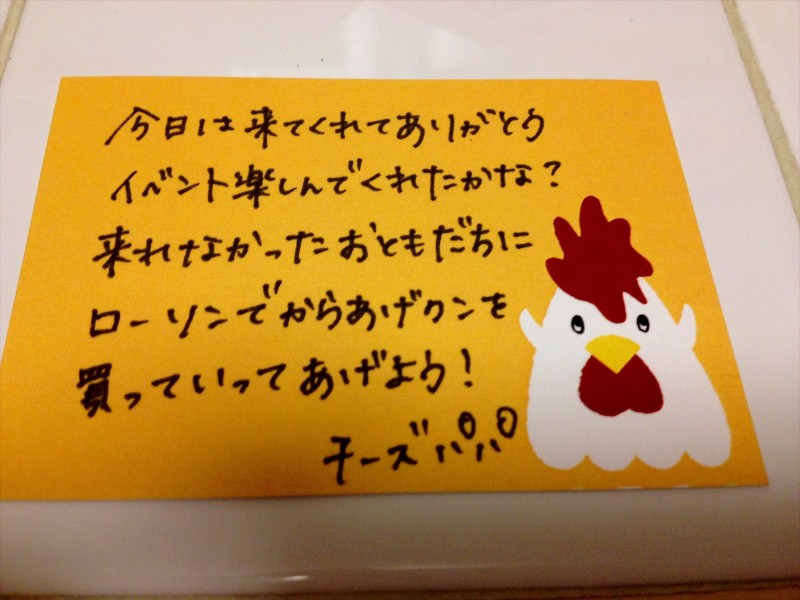 今日は来てくれてありがとう
イベント楽しんでくれたかな?
来れなかったおともだちに
ローソンでからあげクンを
買っていってあげよう!
チーズパパ